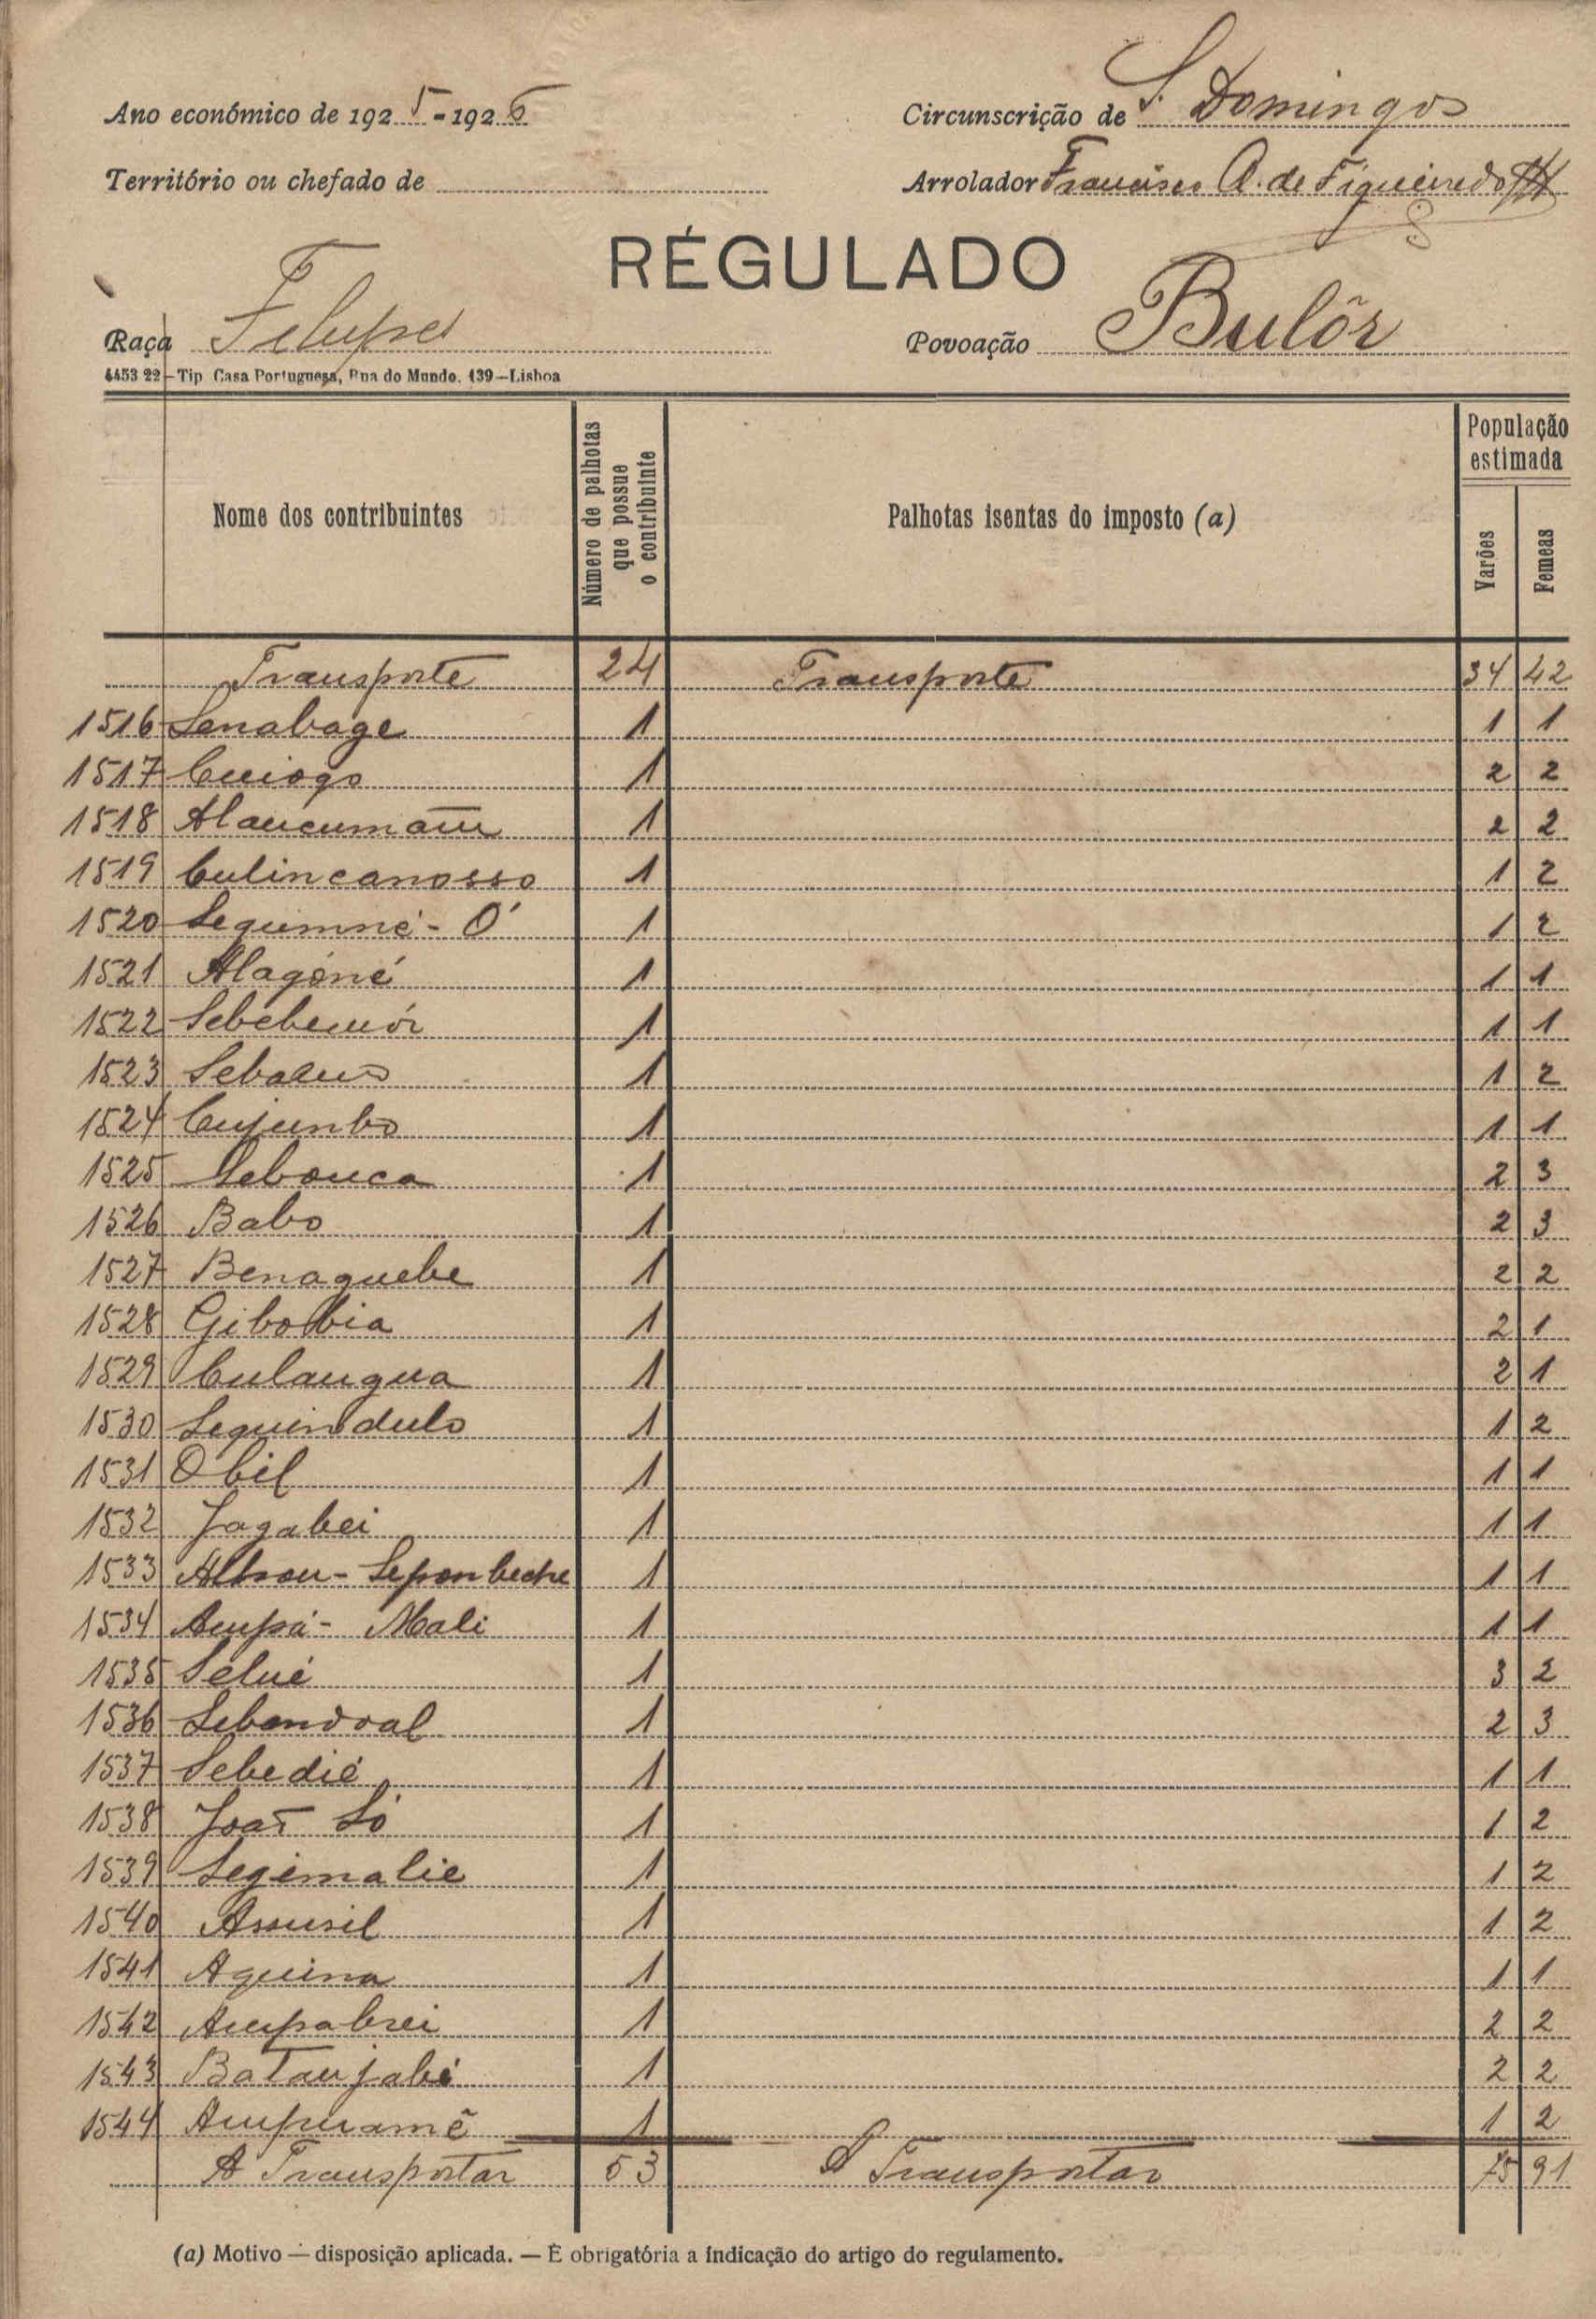 Ano económico de 1925-1926
Circunscrição de S. Domingos
Território ou chefado de
Arrolador Francisco A. de Figueiredo
RÉGULADO
Raça Felupes
Povoação Bulôr
4453 22-Tip Casa Portuguesa, Rua do Mundo, 139-Lisboa
Nome dos contribuintes | Número de palhotas que possue o contribuinte | Palhotas isentas do imposto (a) | População estimada Varões Femeas
Transporte 24 Transporte 34 42
1516 Senabage 1 1 1
1517 Cuiogo 1 2 2
1518 1 2 2
1519 Culincanosso 1 1 2
1520 Sequimné - O' 1 1 2
1521 Alagóné 1 1 1
1522 1 1 1
1523 1 1 2
1524 Cujumbo 1 1 1
1525 Sebouca 1 2 3
1526 Babo 1 2 3
1527 Benaguebe 1 2 2
1528 Gibobia 1 2 1
1529 Culangua 1 2 1
1530 Sequindulo 1 1 2
1531 Obil 1 1 1
1532 Jagabei 1 1 1
1533 1 1 1
1534 Ampá - Mali 1 1 1
1535 Selué 1 3 2
1536 Sebendoal 1 2 3
1537 Sebedié 1 1 1
1538 Joar Só 1 1 2
1539 Segimalie 1 1 2
1540 Assusil 1 1 2
1541 Aquina 1 1 1
1542 Ampabrei 1 2 2
1543 Batanjabé 1 2 2
1544 Ampuramê 1 1 2
A Transportar 53 A Transportar 75 91
(a) Motivo — disposição aplicada. — É obrigatória a indicação do artigo do regulamento.